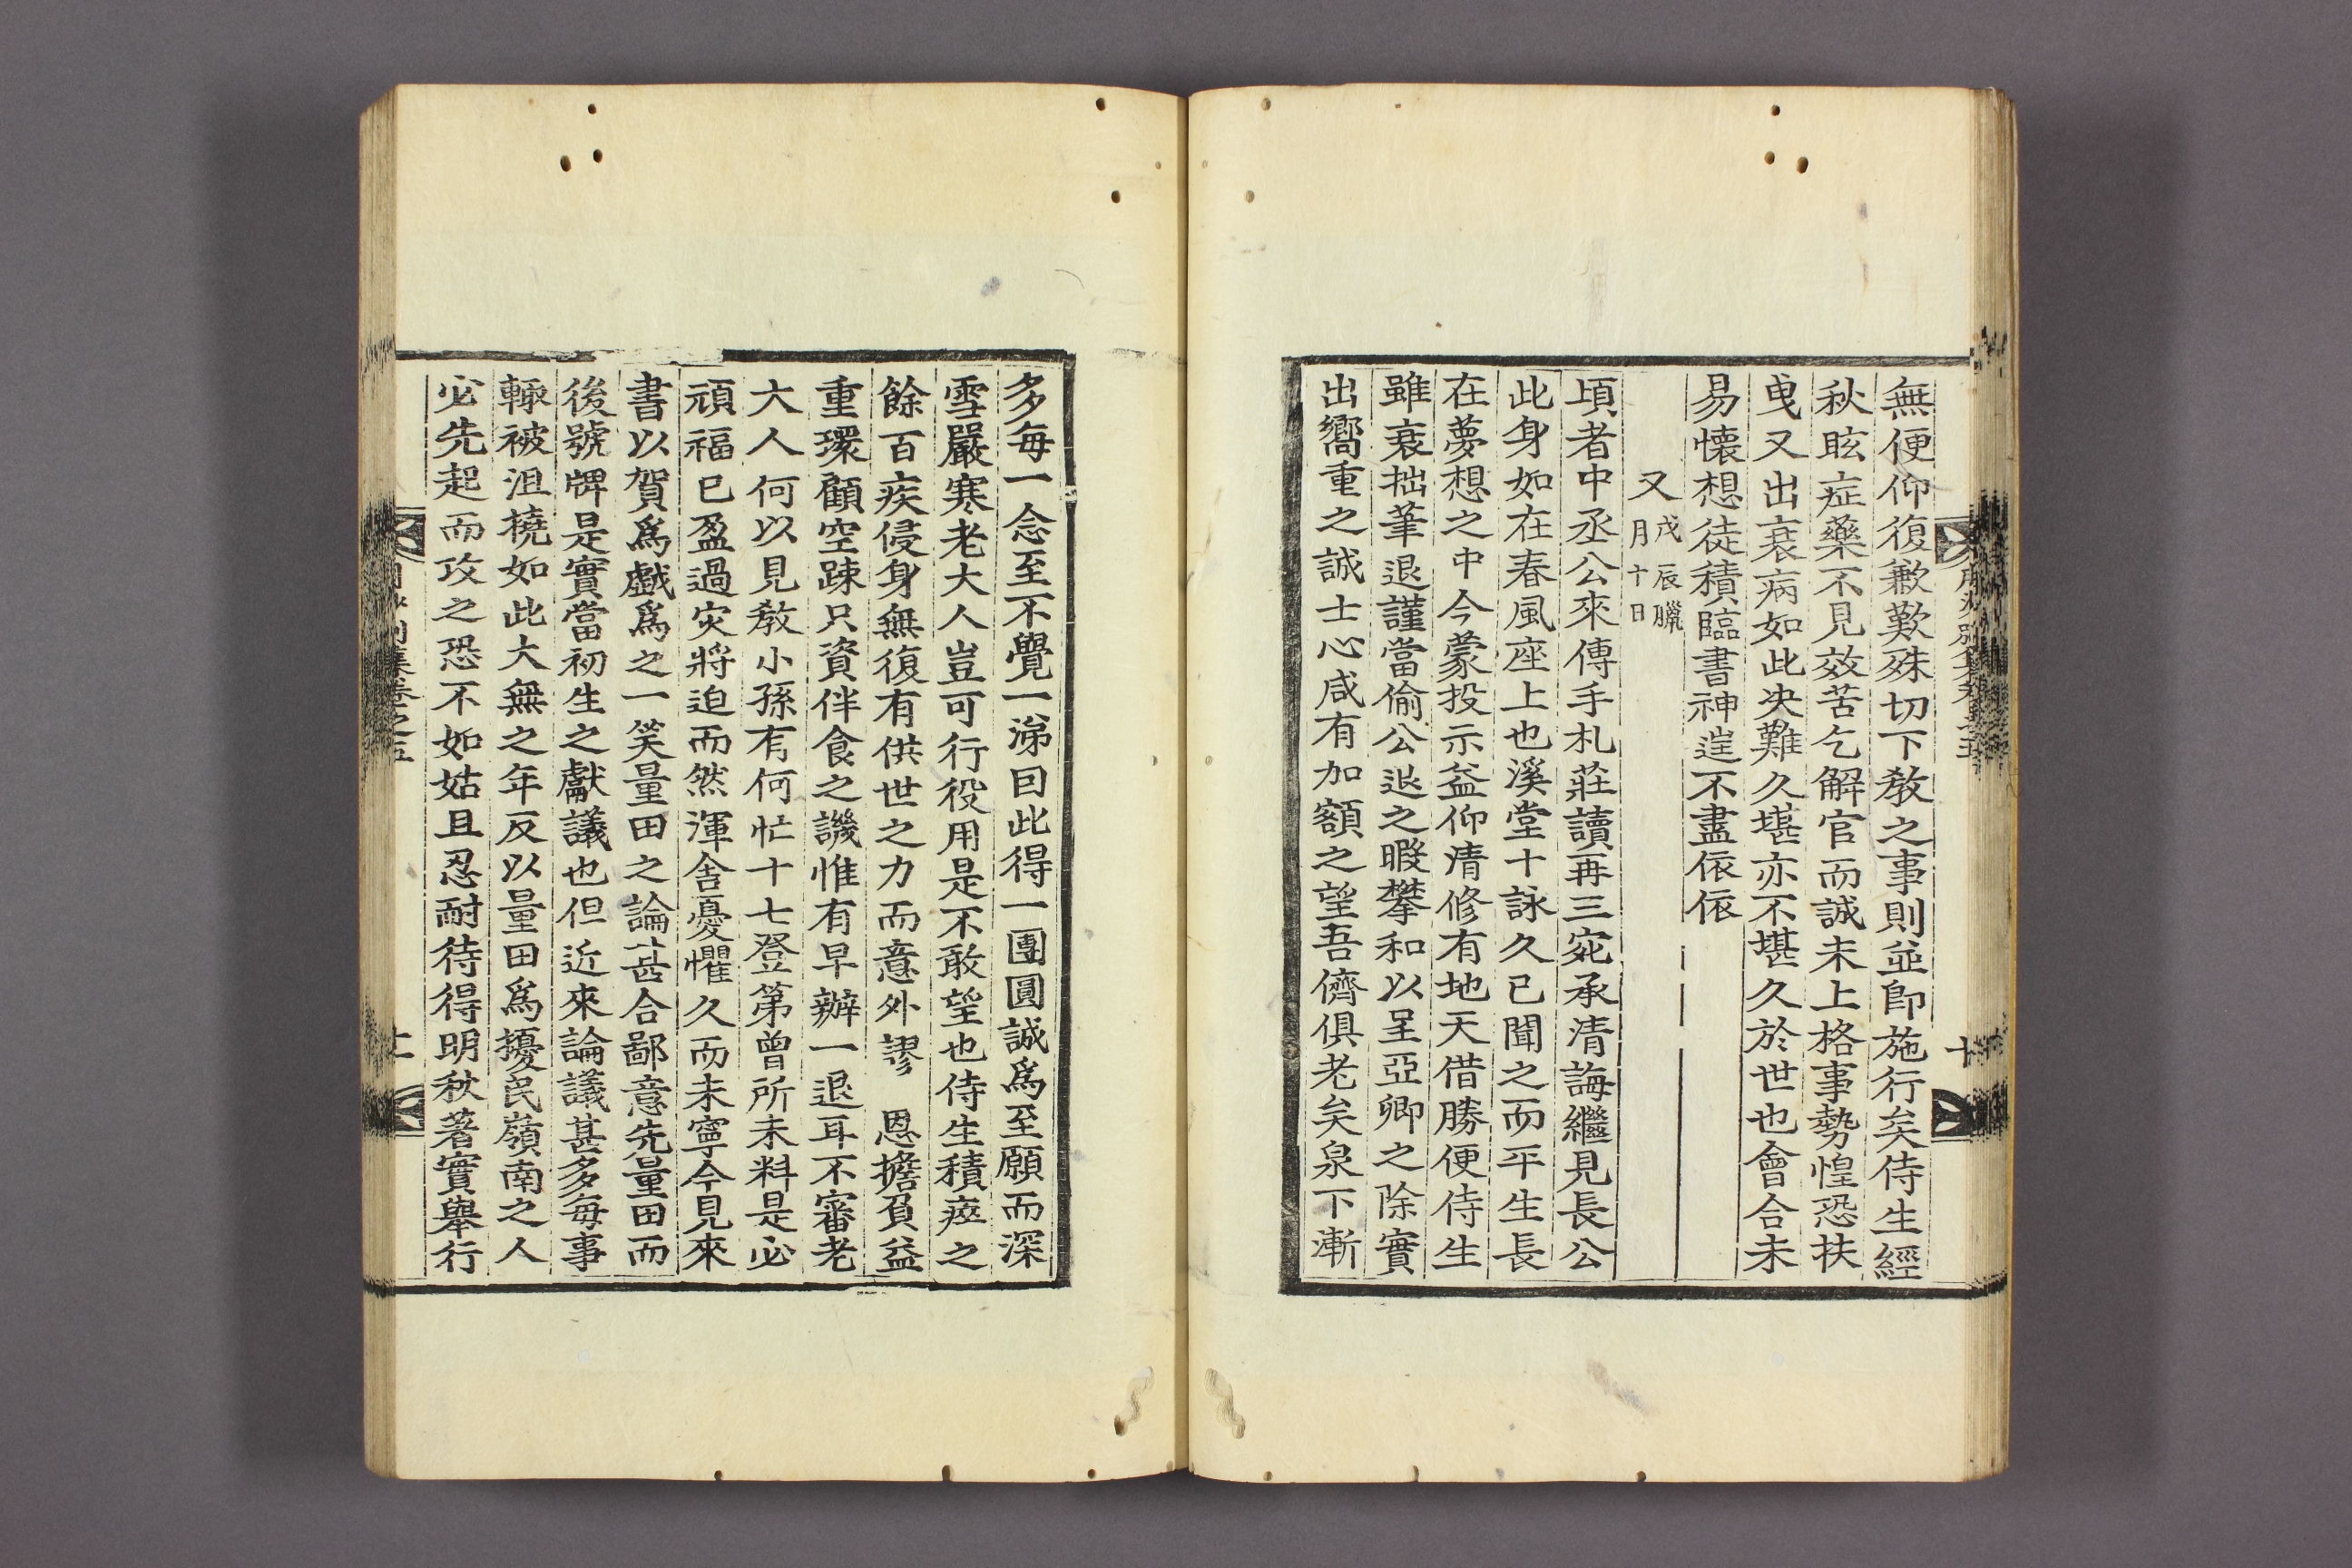 無便仰復歉歎殊切下敎之事則並卽施行矣侍生經
秋眩症藥不見效苦乞解官而誠未上格事勢惶恐扶
曳又出衰病如此决難久堪亦不堪久於世也會合未
易懷想徒積臨書神逞不盡依依
又戊辰臘月十日
頃者中丞公來傳手札莊讀再三宛承清誨繼見長公
此身如在春風座上也溪堂十詠久已聞之而平生長
在夢想之中今蒙投示益仰清修有地天借勝便侍生
雖衰拙筆退謹當偷公退之暇攀和以呈亞卿之除實
出嚮重之誠士心咸有加額之望吾儕俱老矣泉下漸
多每一念至不覺一涕囙此得一團圓誠爲至願而深
雪嚴寒老大人豈可行役用是不敢望也侍生積瘁之
餘百疾侵身無復有供世之力而意外謬 恩擔負益
重環顧空踈只資伴食之譏惟有早辦一退耳不審老
大人何以見敎小孫有何忙十七登第曾所未料是必
頑福已盈過灾將迫而然渾舍憂懼久而未寧今見來
書以賀爲戱爲之一笑量田之論甚合鄙意先量田而
後號牌是實當初生之獻議也但近來論議甚多每事
輙被沮撓如此大無之年反以量田爲擾民嶺南之人
必先起而攻之恐不如姑且忍耐待得明秋著實舉行